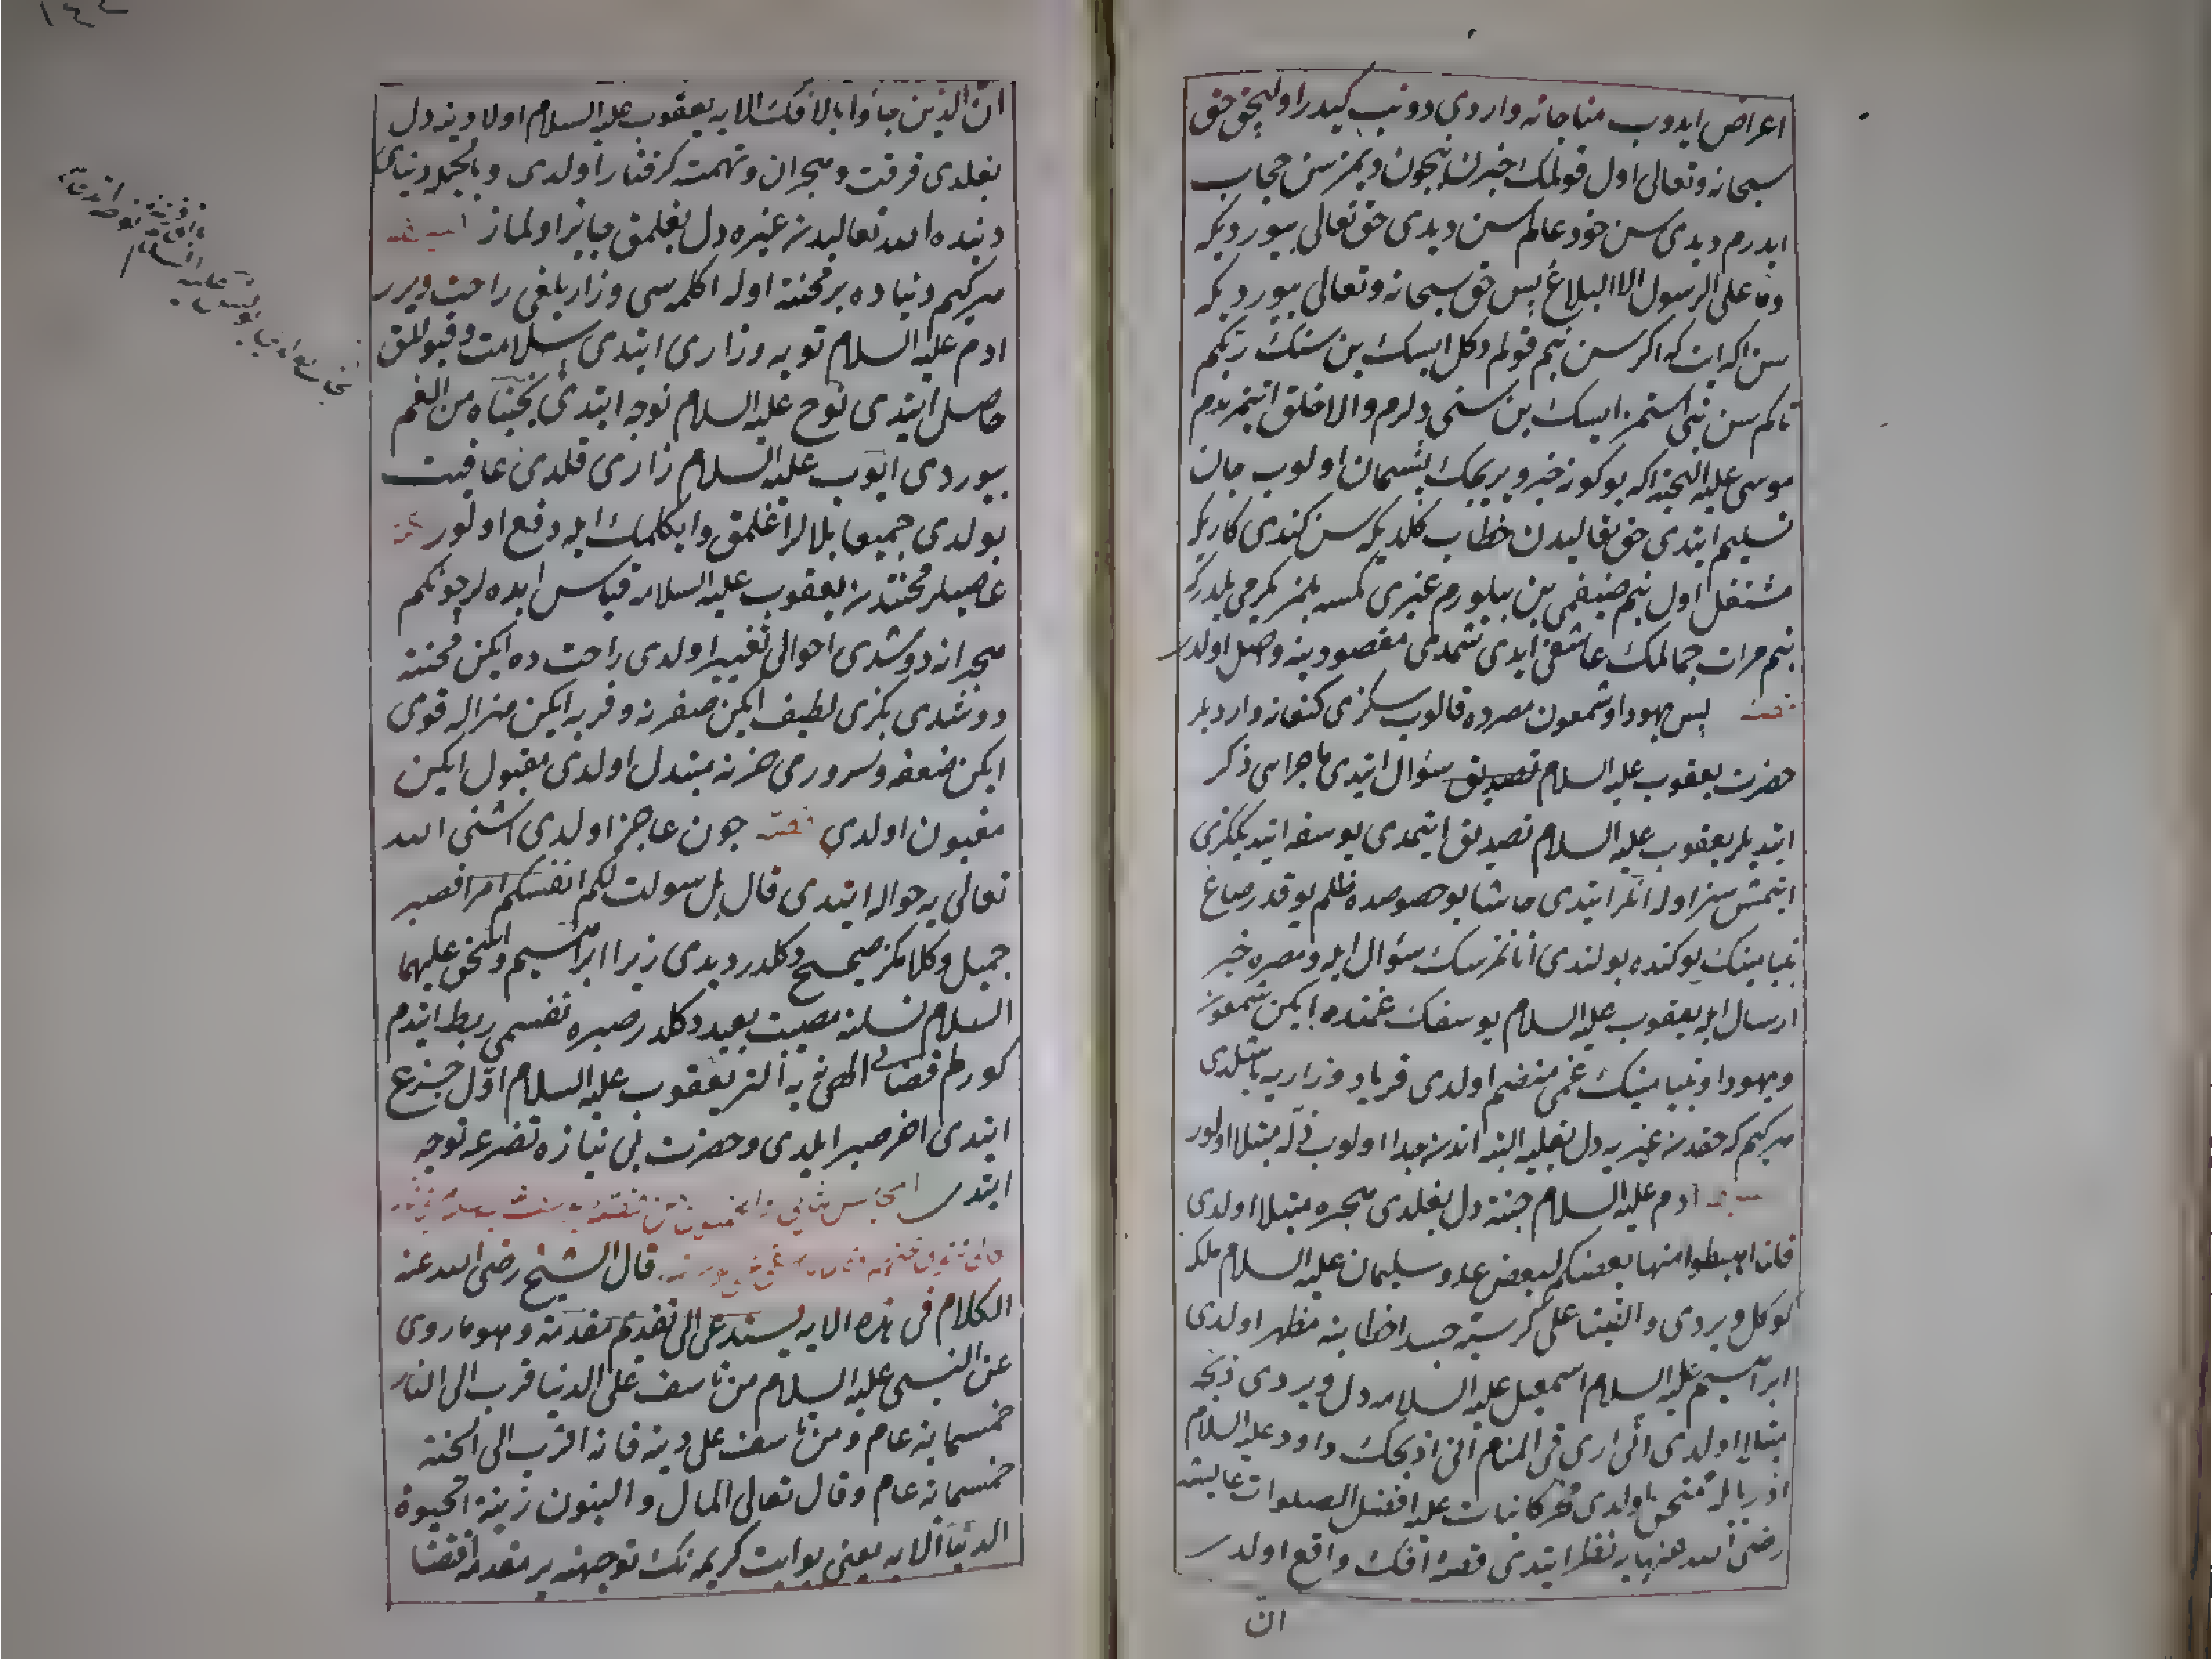 اعراض ایدوب مناجاته واردی دونیب کیدر اولیجق حق
سبحانه وتعالی اول قولمک خبرن نیچون ویرمزسن حجاب
ایدرم دیدی سن خود عالمسن دیدی حق تعالی بیوردیکه
وما علی الرسول الا البلاغ پس حق سبحانه وتعالی بیوردیکه
سن اکه ایت که اکر سن بنم قولم دکل ایسک بن سنک ربکم
تاکم سن بنی استمز ایسک بن سنی دلرم والا خلق اتمزدم
موسی علیه التحیة اکه بو کونه خبر ویریجک پشیمان اولوب جان
تسلیم ایتدی حق تعالیدن خطاب کلدیکه سن کندی کاریکه
مشتغل اول بنم ضیفمی بن بیلورم غیری کمسه بلمز
بنم مرات جمالمک عاشقی ایدی شمدی مقصودینه واصل اولدی
پس یهودا وشمعون مصرده قالوب سکزی کنعانه واردیلر
حضرت یعقوب علیه السلام سؤال ایتدی ماجرای ذکر
ایتدیلر یعقوب علیه السلام تصدیق ایتمدی یوسفه ایتدیککزی
ایتمشسز اوله انلر ایتدی حاشا بو خصوصده ظلم یوقدر صاع
بنیامینک یوکنده بولندی انانمزسک سؤال ایله ومصره خبر
ارسال ایله یعقوب علیه السلام یوسفک غمنده ایکن شمعون
ویهودا وبنیامینک غمی منضم اولدی فریاد وزاریه باشلدی
هر کیم که حقدن غیریه دل بغلیه البته اندن جدا اولوب مبتلا اولور
ادم علیه السلام جنته دل بغلدی هجره مبتلا اولدی
قلنا اهبطوا منها بعضکم لبعض عدو سلیمان علیه السلام ملکه
کوکل ویردی والقینا علی کرسیه جسدا خطابنه مظهر اولدی
ابراهیم علیه السلام اسمعیل علیه السلامه دل ویردی ذبحه
مبتلا اولدی انی اری فی المنام انی اذبحک داود علیه السلام
اوریایله ممتحن اولدی فخر کاینات علیه افضل الصلوات عایشه
رضی الله عنهایه نظر ایتدی قصه افک واقع اولدی
ان
ان الذین جاؤا بالافک الایه یعقوب علیه السلام اولادینه دل
بغلدی فرقت وهجران وتهمته کرفتار اولدی وبالجمله دنیای
دنیده الله تعالیدن غیره دل بغلمق جایز اولماز
هر کیم دنیاده بر محنته اوله اکلمسی وزاریلغی راحت ویرر
ادم علیه السلام توبه وزاری ایتدی سلامت وقبوللق
حاصل ایتدی نوح علیه السلام نوحه ایتدی نجیناه من الغم
بیوردی ایوب علیه السلام زاری قلدی عافیت
بولدی جمیعا بلالر اغلمق وایکلمک ایله دفع اولور
عاصیلر محنتدن یعقوب علیه السلامه قیاس ایده لر چونکم
هجرانه دوشدی احوالی تغییر اولدی راحت ده ایکن محنته
دوشدی بکزی لطیف ایکن صفرته وفربه ایکن هزاله قوی
ایکن ضعفه وسروری حزنه مبتدل اولدی مقبول ایکن
مغبون اولدی چون عاجز اولدی اشنی الله
تعالی یه حواله ایتدی قال بل سولت لکم انفسکم امرا فصبر
جمیل وکلامکز صحیح دکلدر دیدی زیرا ابراهیم واسحق علیهما
السلام نسلنه مصیبت بعید دکلدر صبره نفسمی ربط ایتدم
کورلم قضای الهی نه یعقوب علیه السلام اول جزع
ایتدی اخر صبر ایلدی وحضرت بی نیازه تضرعه توجه
ایتدی
قال الشیخ رضی الله عنه
الکلام فی هذه الایه یستدعی الی تقدیم مقدمة وهو ما روی
عن النبی علیه السلام من تأسف علی الدنیا قرب الی النار
خمسمایة عام ومن تأسف علی دینه فانه اقرب الی الجنة
خمسمایة عام وقال تعالی المال والبنون زینة الحیوة
الدنیا الایه یعنی بو ایت کریمه نک توجیهنه بر مقدمه اقتضا